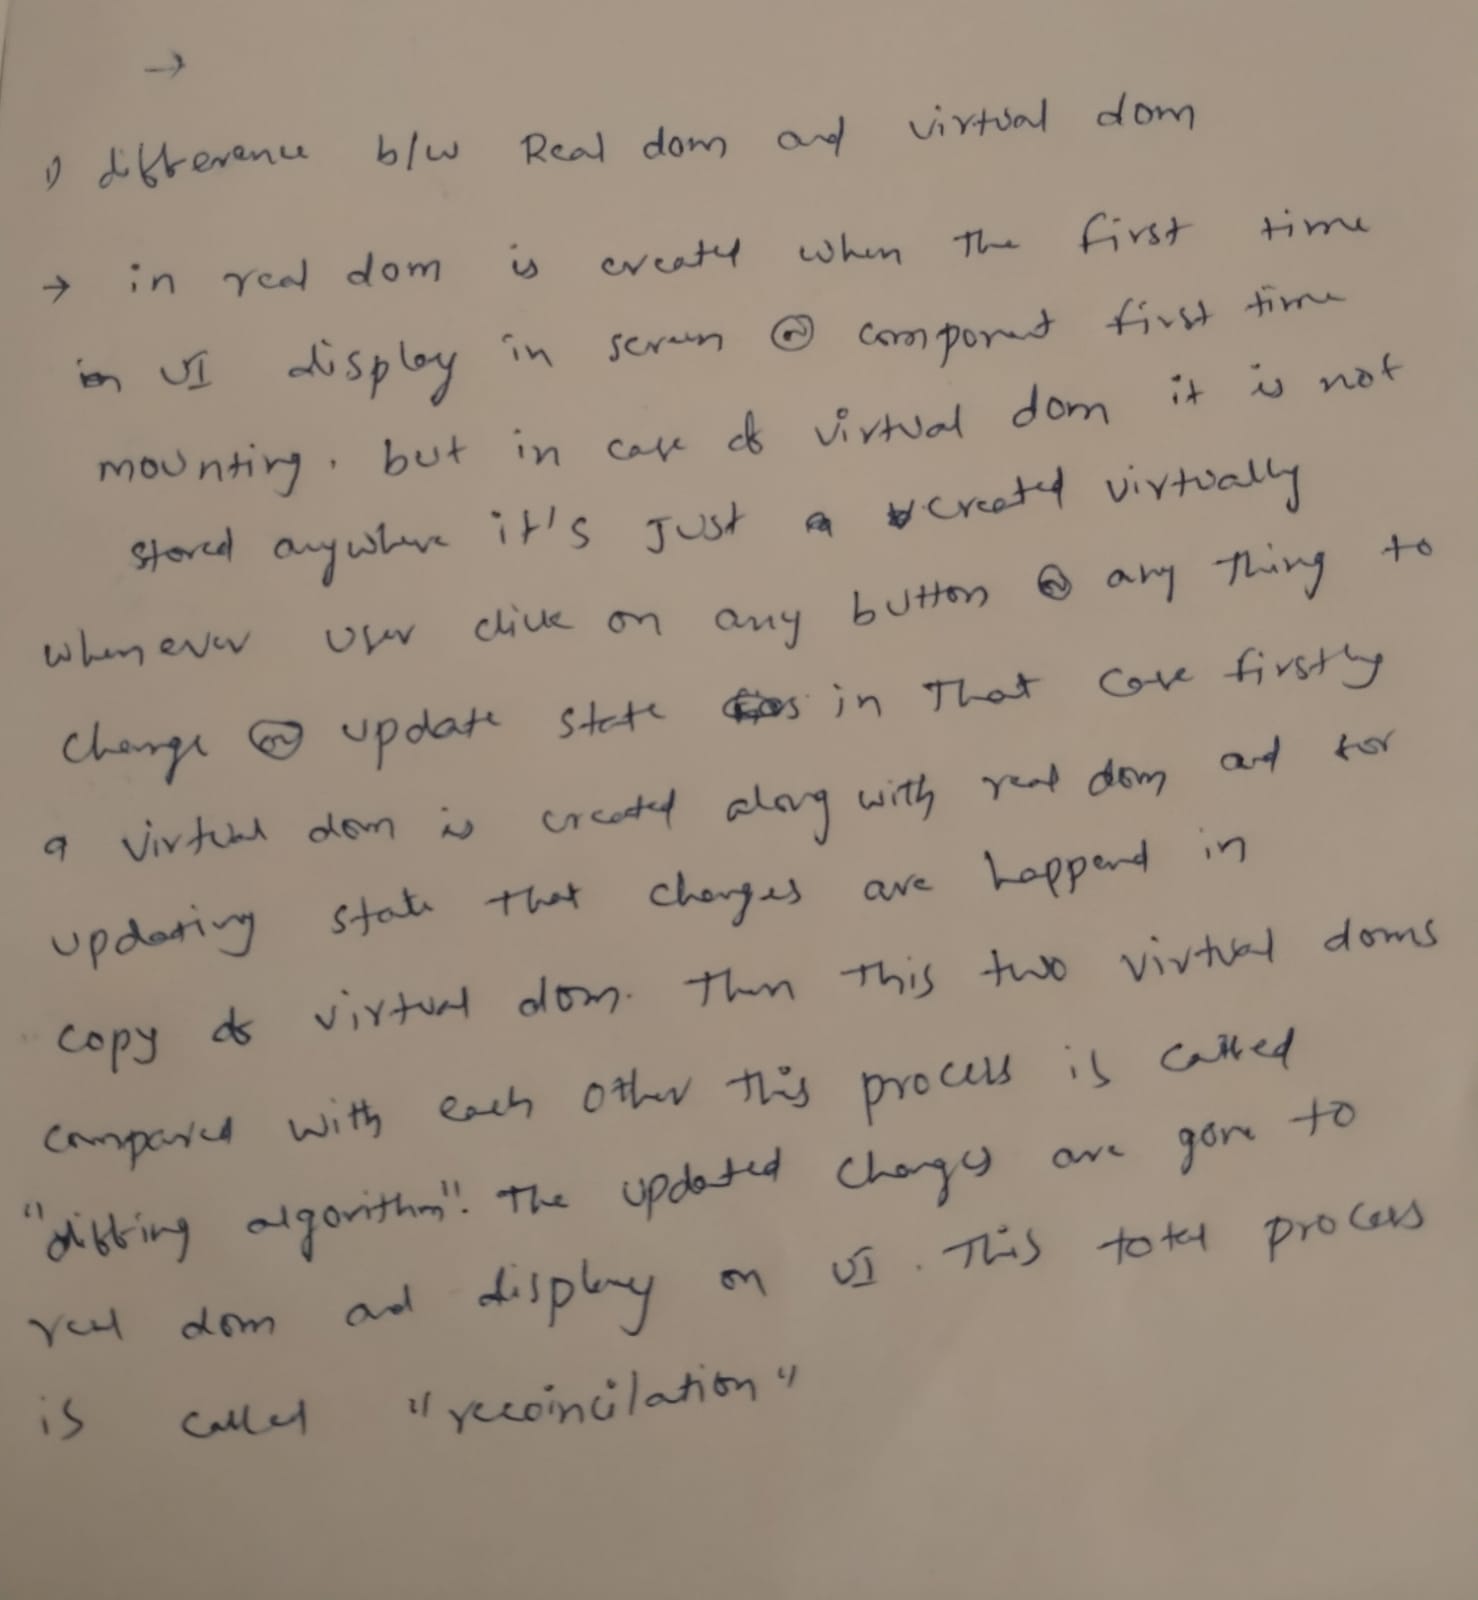 →
1) difference b/w Real dom and virtual dom
→ in real dom is created when the first time
in UI display in screen or component first time
mounting. but in case of virtual dom it is not
stored anywhere it's Just a created virtually
whenever user click on any button or any thing to
change or update state in that case firstly
a virtual dom is created along with real dom and for
updating state that changes are happend in
copy of virtual dom. Then this two virtual doms
compared with each other this process is called
"diffing algorithm". The updated changes are gone to
real dom and display on UI. This total process
is called "recoincilation"